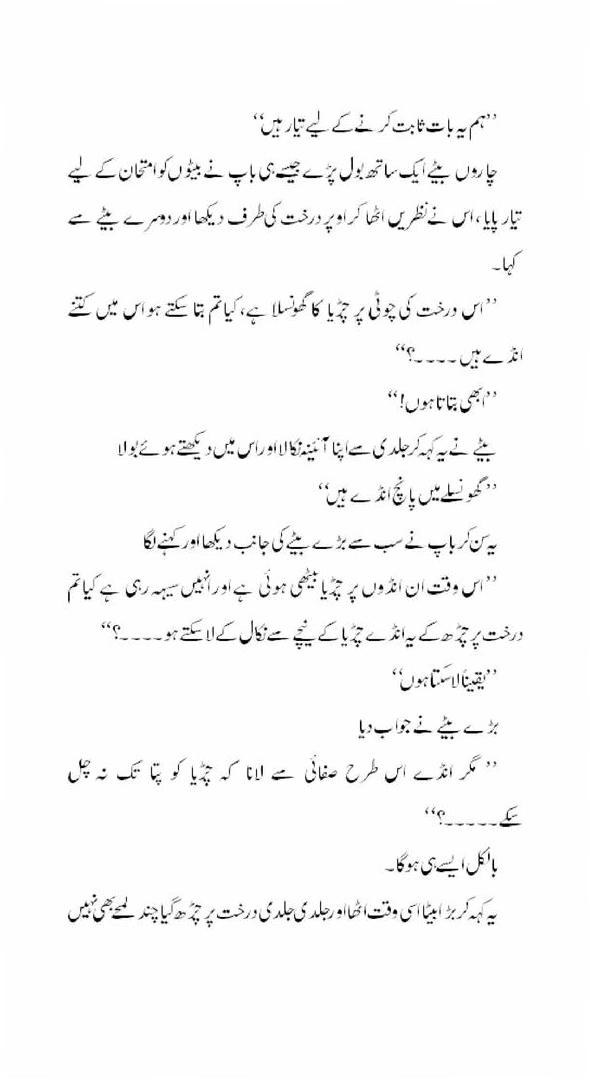 ’’ہم یہ بات ثابت کرنے کے لیے تیار ہیں‘‘
چاروں بیٹے ایک ساتھ بول پڑے جیسے ہی باپ نے بیٹوں کو امتحان کے لیے
تیار پایا، اس نے نظریں اٹھا کر اوپر درخت کی طرف دیکھا اور دوسرے بیٹے سے
کہا۔
’’اس درخت کی چوٹی پر چڑیا کا گھونسلا ہے، کیا تم بتا سکتے ہو اس میں کتنے
انڈے ہیں ۔۔۔۔؟‘‘
’’ابھی بتاتا ہوں!‘‘
بیٹے نے یہ کہہ کر جلدی سے اپنا آئینہ نکالا اور اس میں دیکھتے ہوئے بولا
’’گھونسلے میں پانچ انڈے ہیں‘‘
یہ سن کر باپ نے سب سے بڑے بیٹے کی جانب دیکھا اور کہنے لگا
’’اس وقت ان انڈوں پر چڑیا بیٹھی ہوئی ہے اور انہیں سیہہ رہی ہے کیا تم
درخت پر چڑھ کے یہ انڈے چڑیا کے نیچے سے نکال کے لا سکتے ہو۔۔۔۔؟‘‘
’’یقیناً لا سکتا ہوں‘‘
بڑے بیٹے نے جواب دیا
’’مگر انڈے اس طرح صفائی سے لانا کہ چڑیا کو پتا تک نہ چل
سکے۔۔۔۔۔؟‘‘
بالکل ایسے ہی ہوگا۔
یہ کہہ کر بڑا بیٹا اسی وقت اٹھا اور جلدی جلدی درخت پر چڑھ گیا چند لمحے بھی نہیں